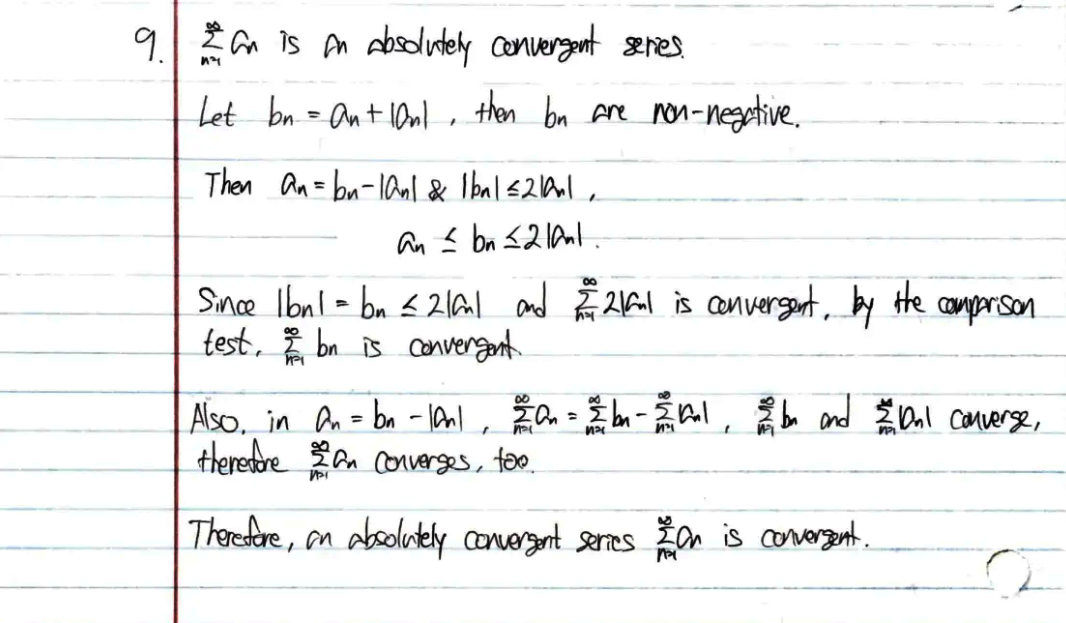 9. ∞Σn=1 an is an absolutely convergent series.
Let bn = an + |an| , then bn are non-negative.
Then an = bn - |an| & |bn| ≤ 2|an| ,
an ≤ bn ≤ 2|an| .
Since |bn| = bn ≤ 2|an| and ∞Σn=1 2|an| is convergent, by the comparison
test, ∞Σn=1 bn is convergent.
Also, in an = bn - |an| , ∞Σn=1 an = ∞Σn=1 bn - ∞Σn=1 |an| , ∞Σn=1 bn and ∞Σn=1 |an| converge,
therefore ∞Σn=1 an converges, too.
Therefore, an absolutely convergent series ∞Σn=1 an is convergent.